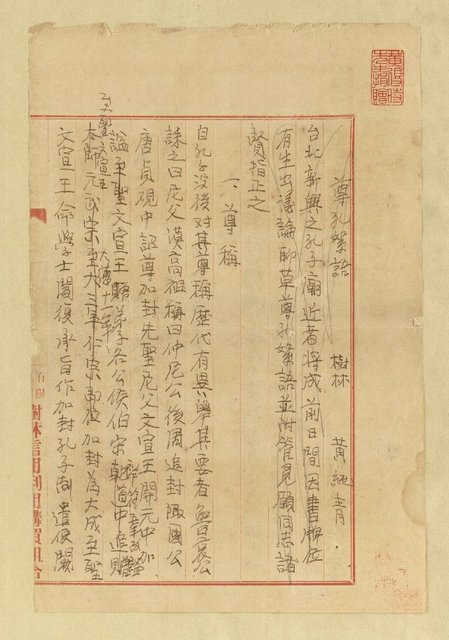 尊孔絮語　樹林　黃純青
台北新興之孔子廟近者將成前日間因書牌位
有生出議論聊草尊孔絮語並附管見願同志諸
賢指正之
一、尊稱
自孔子没後对其尊稱歷代有異畧其要者魯哀公
誄之曰尼父漢高祖稱曰仲尼公後周追封鄒國公
唐貞觀中詔尊加封先聖尼父文宣王開元中加
謚至聖文宣王贈弟子各公侯伯宋朝祥符中追謚
至聖文宣王
太師元武宗至大三年 即位加封為大成至聖
大德十一年
文宣王命學士閻復承旨作加封孔子制遣使闕
樹林信用利用購買組合